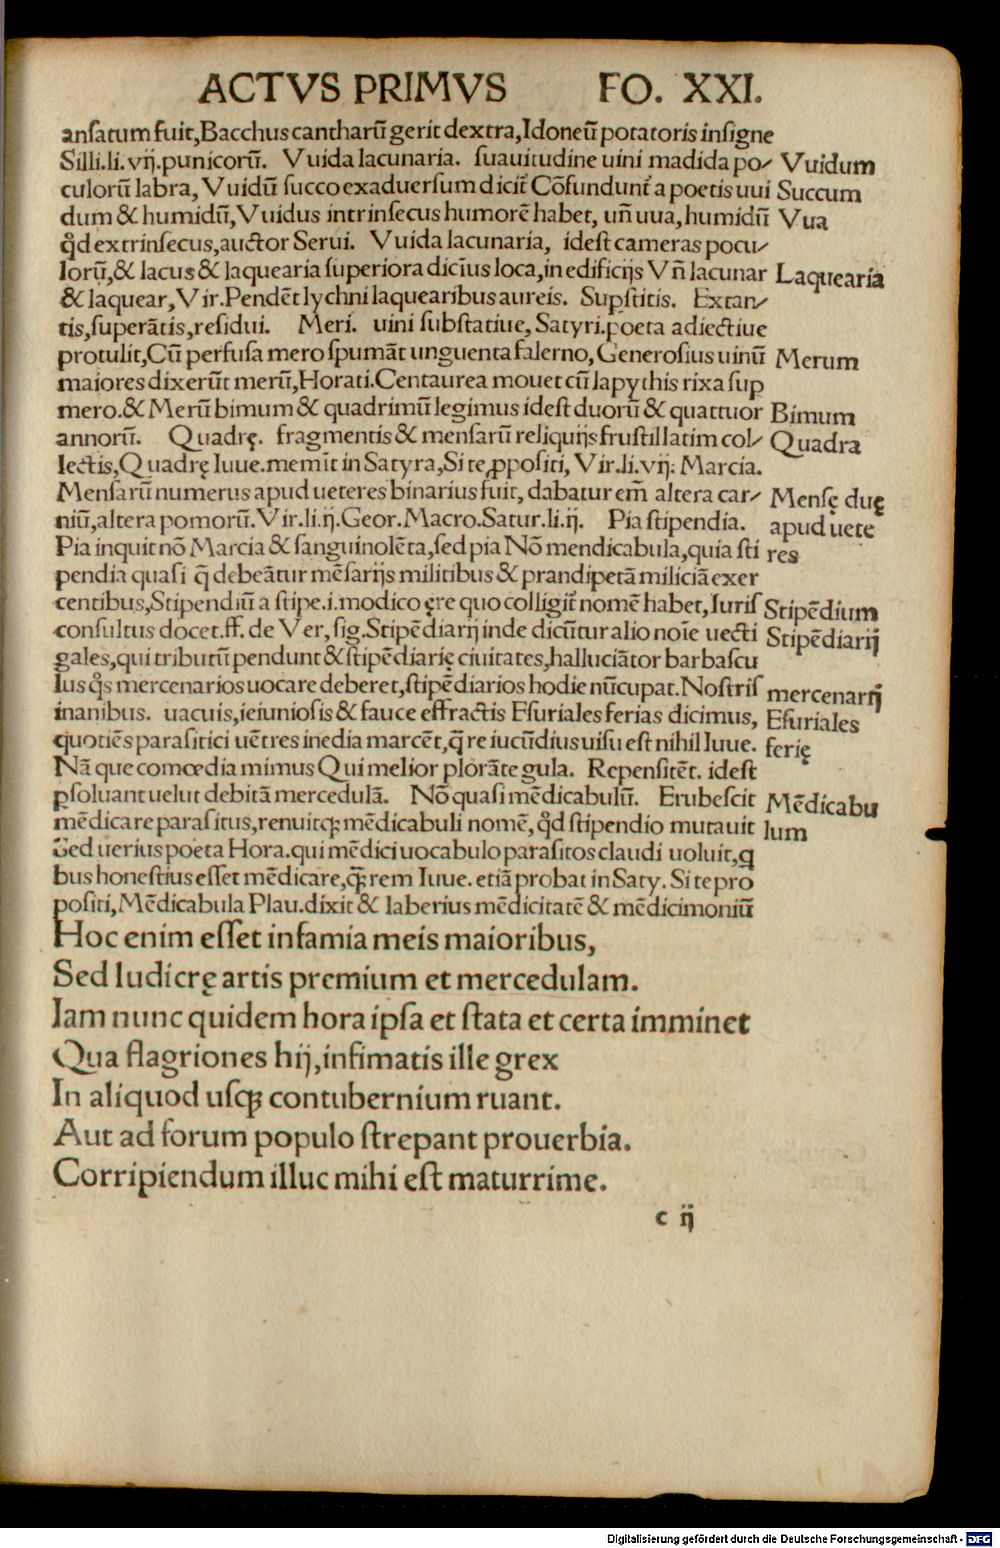 ACTVS PRIMVS FO. XXI.
anſatum fuit,Bacchus cantharū gerit dextra,Idoneū potatoris inſigne
Silli.li.vij.punicorū. Vuida lacunaria. ſuauitudine uini madida po⸗ Vuidum
culorū labra, Vuidū ſucco exaduerſum dicit̃ Cōfundunt̃ a poetis uui Succum
dum & humidū,Vuidus intrinſecus humorē habet, uñ uua, humidū Vua
ꝙd extrinſecus,auctor Serui. Vuida lacunaria, ideſt cameras pocu⸗
lorū,& lacus & laquearia ſuperiora diciūs loca,in edificijs Vñ lacunar Laquearia
& laquear,Vir.Pendēt lychni laquearibus aureis. Supſtitis. Extan⸗
tis,ſuperātis,reſidui. Meri. uini ſubſtatiue, Satyri.poeta adiectiue
protulit,Cū perfuſa mero ſpumāt unguenta falerno,Generoſius uinū Merum
maiores dixerūt merū,Horati.Centaurea mouet cū lapythis rixa ſup
mero.& Merū bimum & quadrimū legimus ideſt duorū & quattuor Bimum
annorū. Quadrę. fragmentis & menſarū reliquijs fruſtillatim col⸗ Quadra
lectis,Quadrę Iuue.memīt in Satyra,Si te ꝓpoſiti, Vir.li.vij: Marcia.
Menſarū numerus apud ueteres binarius fuit, dabatur em̄ altera car⸗ Menſę duę
niū,altera pomorū.Vir.li.ij.Geor.Macro.Satur.li.ij. Pia ſtipendia. apud uete
Pia inquit nō Marcia & ſanguinolēta,ſed pia Nō mendicabula,quia ſti res
pendia quaſi q̄ debeātur mēſarijs militibus & prandipetā miliciā exer
centibus,Stipendiū a ſtipe.i.modico ęre quo colligit̃ nomē habet,Iuriſ Stipēdium
conſultus docet.ff. de Ver, ſig.Stipēdiarij inde dicūtur alio noīe uecti Stipēdiarij
gales,qui tributū pendunt & ſtipēdiarię ciuitates,halluciātor barbaſcu
lus q̊s mercenarios uocare deberet,ſtipēdiarios hodie nūcupat.Noſtriſ mercenarij
inanibus. uacuis,ieiunioſis & fauce effractis Eſuriales ferias dicimus, Eſuriales
quotiēs paraſitici uētres inedia marcēt,q̄ re iucūdius uiſu eſt nihil Iuue. ferię
Nā que comœdia mimus Qui melior plorāte gula. Repenſitēt. ideſt
ꝑſoluant uelut debitā mercedulā. Nō quaſi mēdicabulū. Erubeſcit Mēdicabu
mēdicare paraſitus,renuitqꝫ mēdicabuli nomē,ꝙd ſtipendio mutauit lum
Sed uerius poeta Hora.qui mēdici uocabulo paraſitos claudi uoluit,q
bus honeſtius eſſet mēdicare,q̄ꝫ rem Iuue. etiā probat in Saty. Si te pro
poſiti,Mēdicabula Plau.dixit & laberius mēdicitatē & mēdicimoniū
Hoc enim eſſet infamia meis maioribus,
Sed ludicrę artis premium et mercedulam.
Iam nunc quidem hora ipſa et ſtata et certa imminet
Qua flagriones hij,infimatis ille grex
In aliquod uſqꝫ contubernium ruant.
Aut ad forum populo ſtrepant prouerbia.
Corripiendum illuc mihi eſt maturrime.
c ij
Digitalisierung gefördert durch die Deutsche Forschungsgemeinschaft - DFG